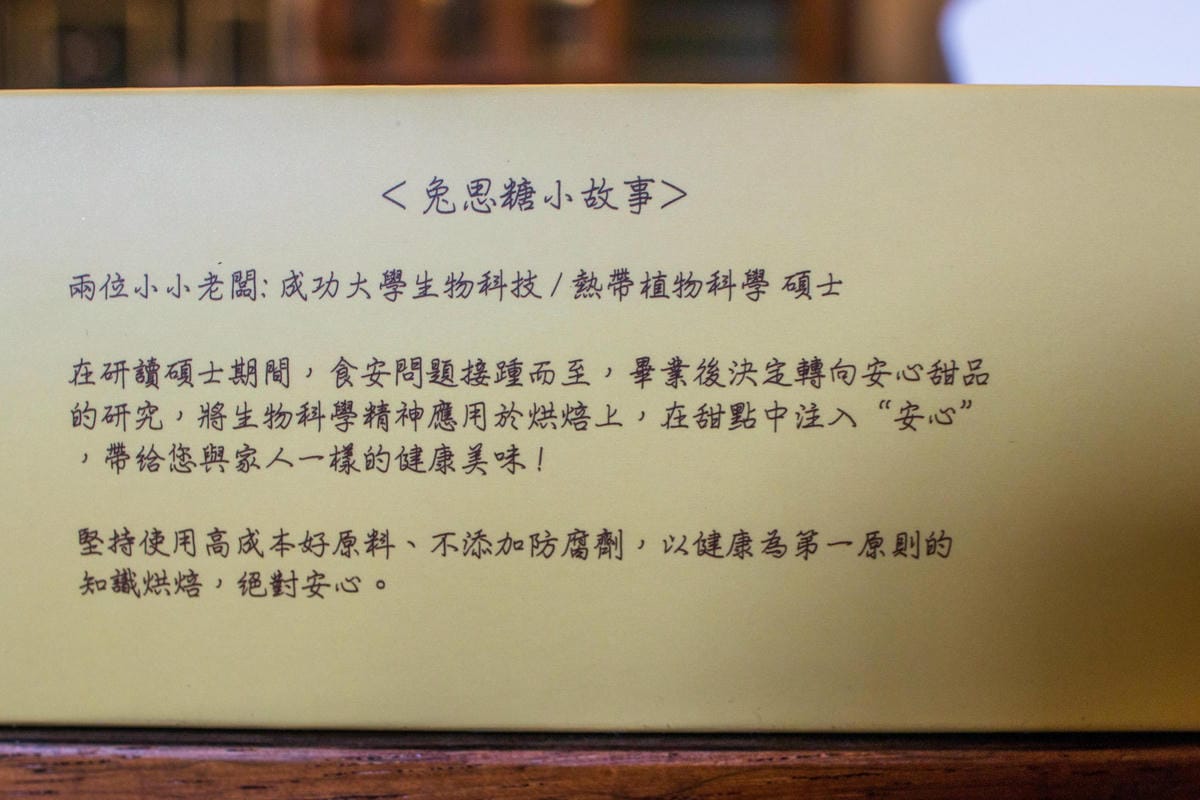 <兔思糖小故事>
兩位小小老闆:成功大學生物科技/熱帶植物科學 碩士
在研讀碩士期間，食安問題接踵而至，畢業後決定轉向安心甜品
的研究，將生物科學精神應用於烘焙上，在甜點中注入“安心”
，帶給您與家人一樣的健康美味!
堅持使用高成本好原料、不添加防腐劑，以健康為第一原則的
知識烘焙，絕對安心。